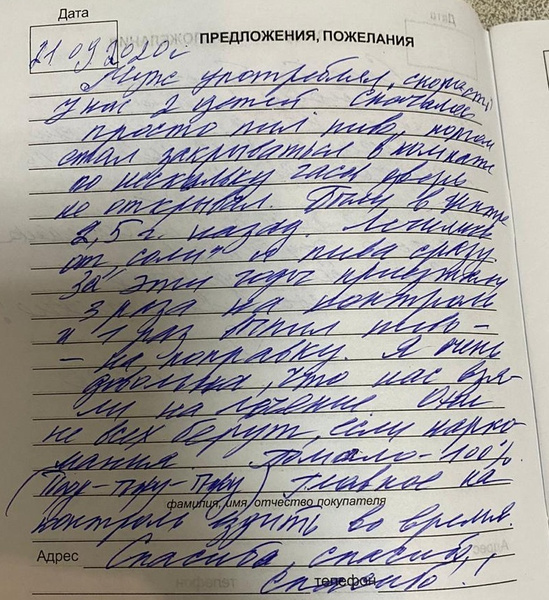 Дата
ПРЕДЛОЖЕНИЯ, ПОЖЕЛАНИЯ
21 09 2020г
Муж употреблял, скорости
у нас 2 детей Сначала
просто пил пиво, потом
стал закрываться в комнате
по несколько часов двери
не открывал. Были в центре
2,5 г. назад. Лечились
от "соли" и пива сразу
За эти годы приезжали
3 раза на контроль
и 1 раз пил пиво -
- на поправку. Я очень
довольна, что нас взя-
ли на лечение они
не всех берут, если нарко-
мания. Помогло - 100%.
(Тьфу-тьфу-тьфу) Главное на
фамилия, имя, отчество покупателя
контроль ездить во время.
Адрес Спасибо, спасибо,
спасибо!
телефон